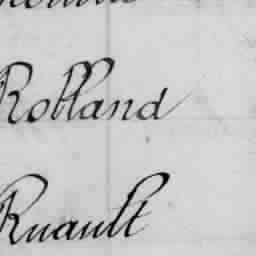 Robland
Ruault